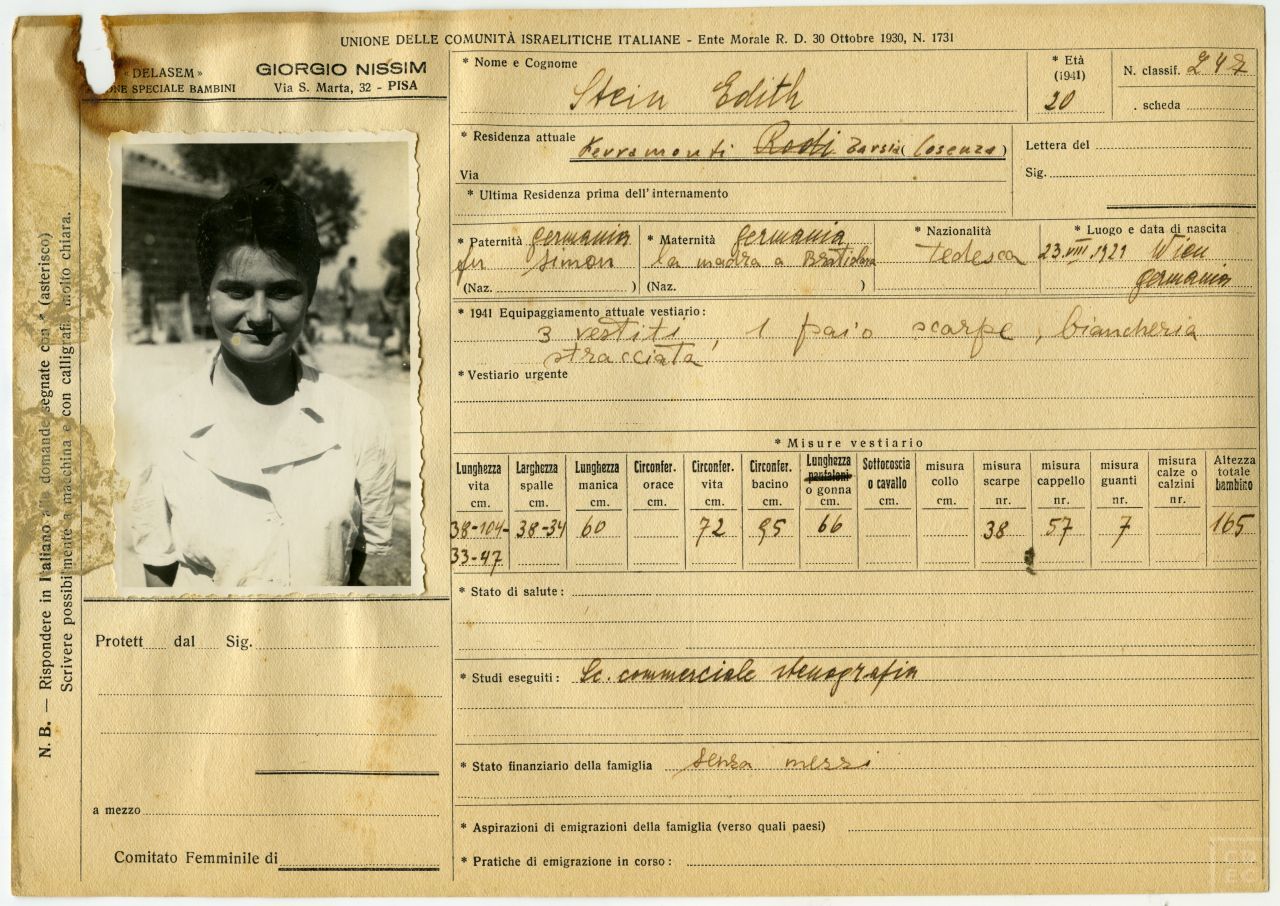 UNIONE DELLE COMUNITÀ ISRAELITICHE ITALIANE - Ente Morale R. D. 30 Ottobre 1930, N. 1731
« DELASEM »
ONE SPECIALE BAMBINI
GIORGIO NISSIM
Via S. Marta, 32 - PISA
* Nome e Cognome
Stein Edith
* Età
(1941)
20
N. classif. 247
. scheda
* Residenza attuale Ferramonti Rodi Tarsia (Cosenza)
Via
* Ultima Residenza prima dell' internamento
Lettera del
Sig.
* Paternità germania
fu Simon
(Naz. )
* Maternità germania
la madre a Bratislava
(Naz. )
* Nazionalità
tedesca
* Luogo e data di nascita
23.VIII 1921 Wien
germania
* 1941 Equipaggiamento attuale vestiario:
3 vestiti, 1 paio scarpe, biancheria
stracciata
* Vestiario urgente
* Misure vestiario
Lunghezza vita cm.
Larghezza spalle cm.
Lunghezza manica cm.
Circonfer. orace cm.
Circonfer. vita cm.
Circonfer. bacino cm.
Lunghezza pantaloni o gonna cm.
Sottocoscia o cavallo cm.
misura collo cm.
misura scarpe nr.
misura cappello nr.
misura guanti nr.
misura calze o calzini nr.
Altezza totale bambino
38-104- 38-34 60 72 95 66 38 57 7 165
33-47
* Stato di salute:
* Studi eseguiti: Sc. commerciale stenografia
* Stato finanziario della famiglia senza mezzi
* Aspirazioni di emigrazioni della famiglia (verso quali paesi)
* Pratiche di emigrazione in corso:
Protett dal Sig.
a mezzo
Comitato Femminile di
N. B. — Rispondere in Italiano alle domande segnate con * (asterisco)
Scrivere possibilmente a macchina e con calligrafia molto chiara.
CDEC